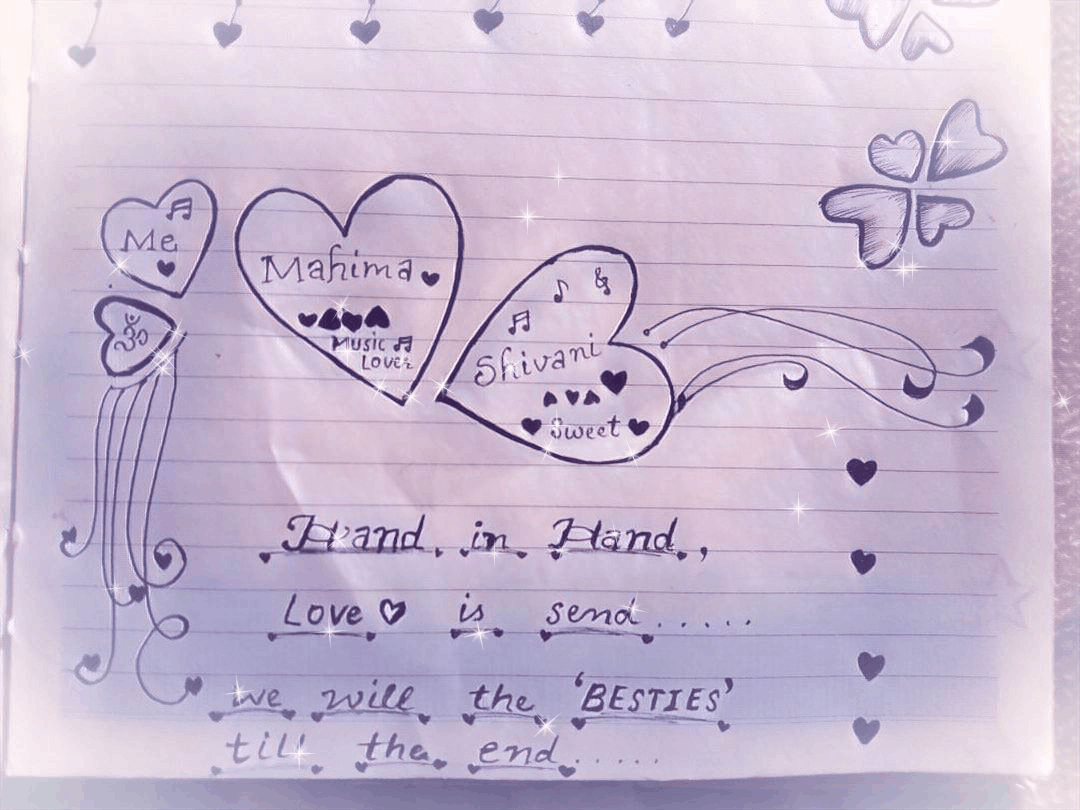 Me
ॐ
Mahima
Music
Lover
Shivani
Sweet
Hand in Hand,
Love is send.....
we will the 'BESTIES'
till the end.....